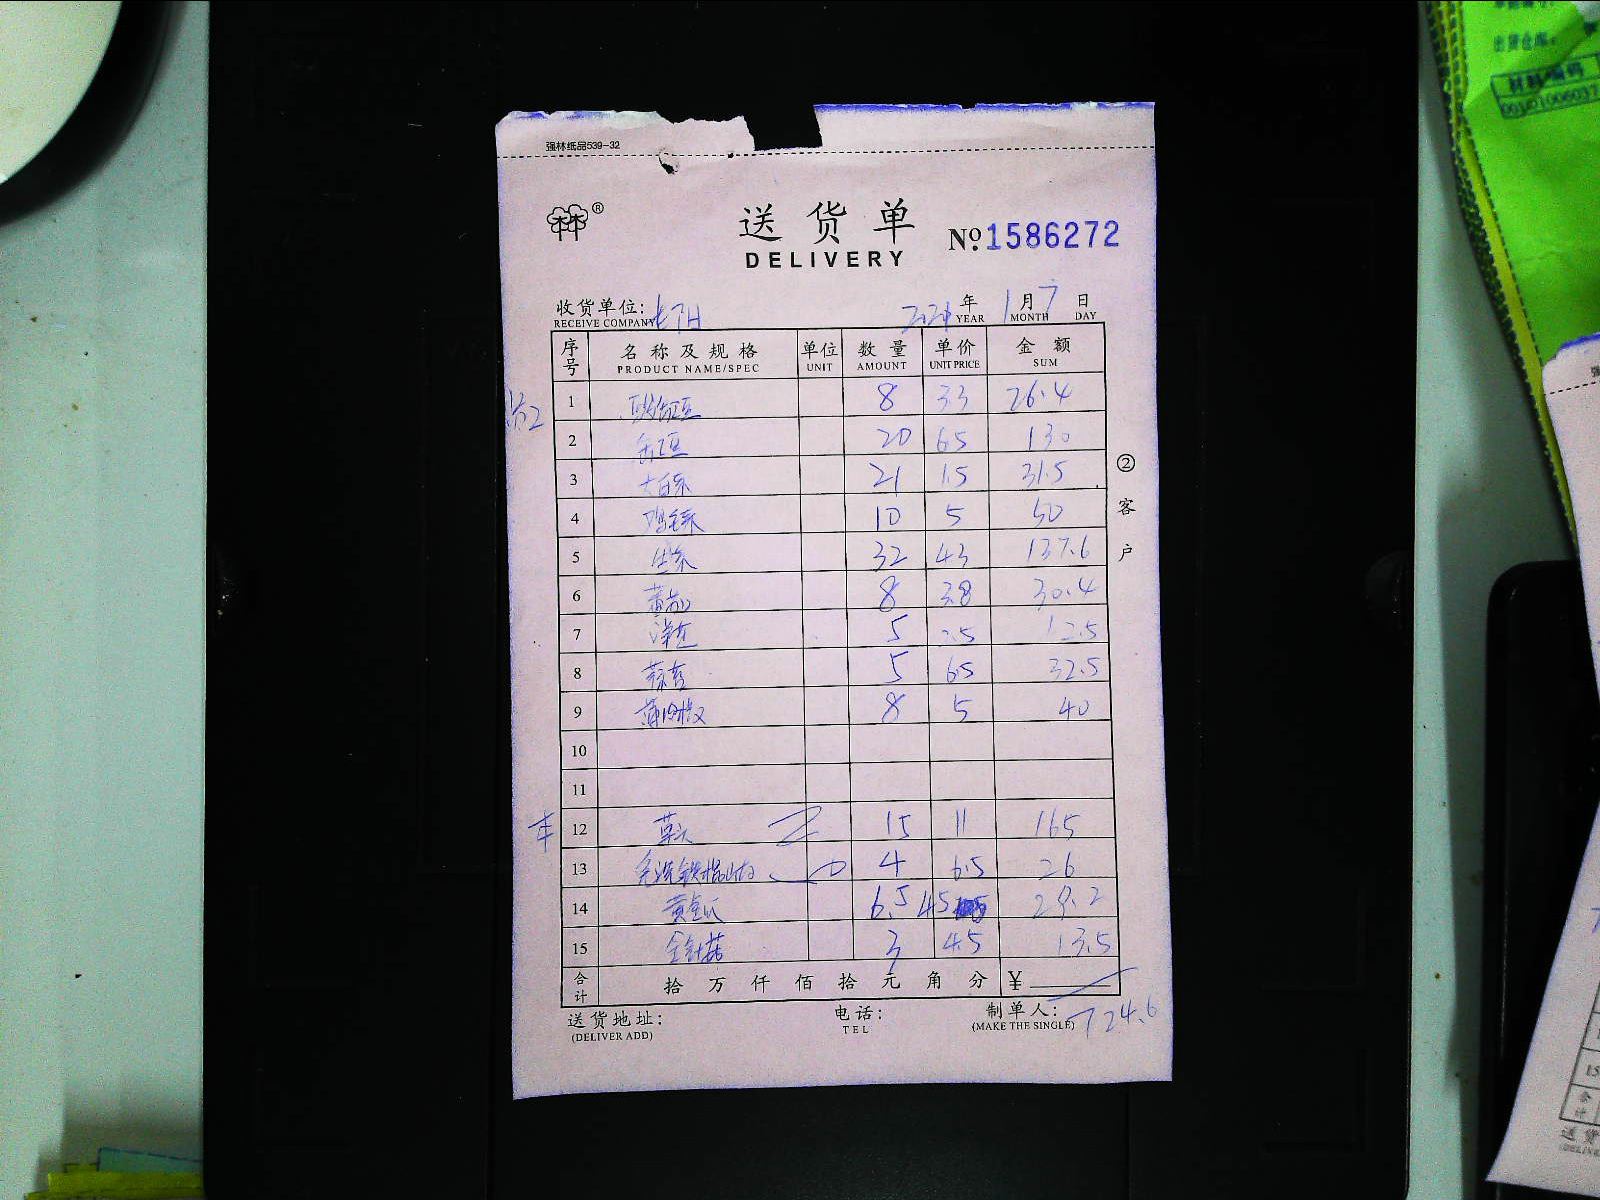 强林纸品539-32
林®
送货单
DELIVERY
No.1586272
收货单位:
RECEIVE COMPANY
年 1月7日
YEAR MONTH DAY
序号 名称及规格 单位 数量 单价 金额
PRODUCT NAME/SPEC UNIT AMOUNT UNIT PRICE SUM
1 8 33 26.4
2 20 65 130
3 大白菜 21 1.5 31.5
4 鸡毛菜 10 5 50
5 生菜 32 43 137.6
6 8 38 30.4
7 5 2.5 12.5
8 5 6.5 32.5
9 8 5 40
10
11
12 草头 15 11 165
13 4 6.5 26
14 黄金瓜 6.5 45 29.2
15 金针菇 3 4.5 13.5
合计 拾万仟佰拾元角分 ¥
724.6
送货地址:
(DELIVER ADD)
电话:
TEL
制单人:
(MAKE THE SINGLE)
②客户
材料编码